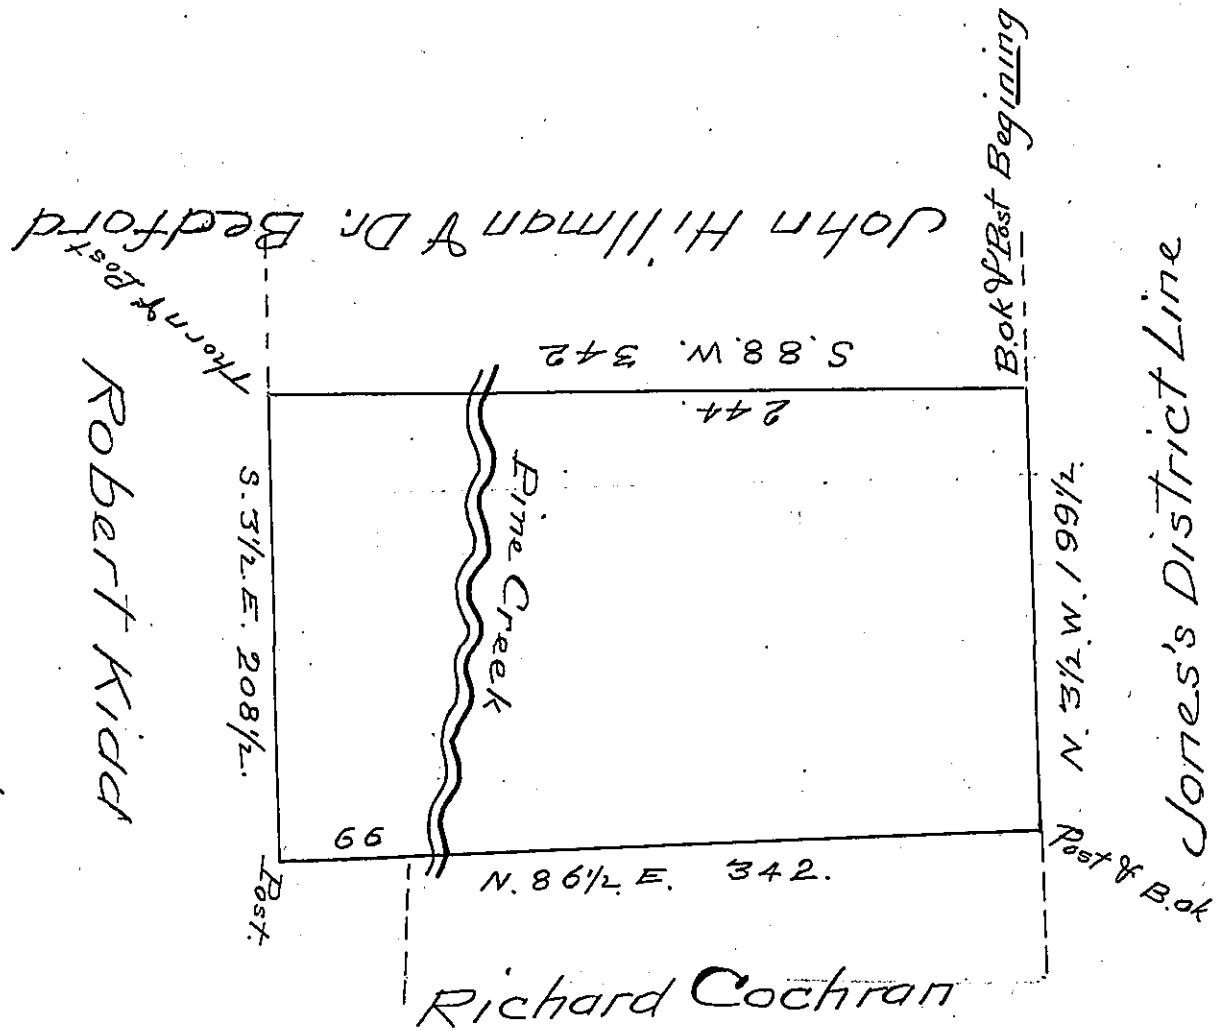 B.ok & Post Begining
John Hillman & Dr. Bedford
Thorn & Post
S. 88. W. 342
244.
Jones's District Line
Robert Kidd
S. 3 1/2. E. 208 1/2.
Pine Creek
N. 3 1/2. W. 199 1/2.
66
N. 86 1/2. E. 342.
Post & B.ok
Post.
Richard Cochran